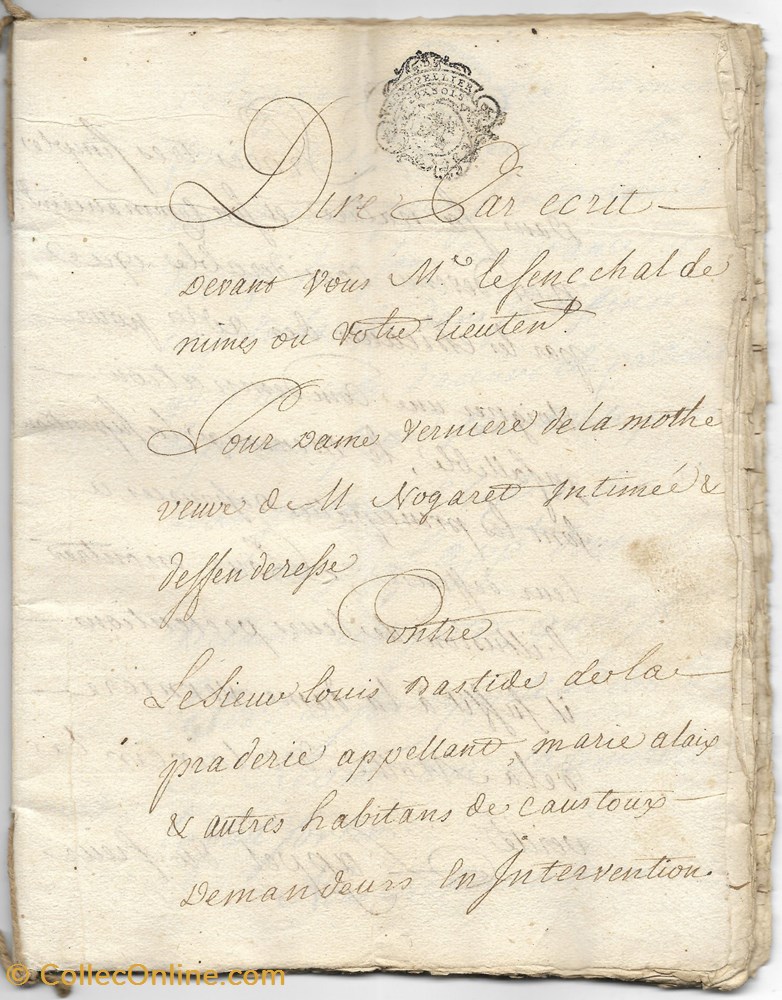 MONTPELLIER
SOLS
Dire Par ecrit
Devant vous Mr. le senechal de
nimes ou votre lieutent.
Pour Dame verniere de la mothe
veuve de M Nogaret Intimée &
deffenderesse
Contre
Le sieur louis Bastide de la
praderie appellant, marie alaix
& autres habitans de caustoux
Demandeurs En Intervention.
© CollecOnline.com